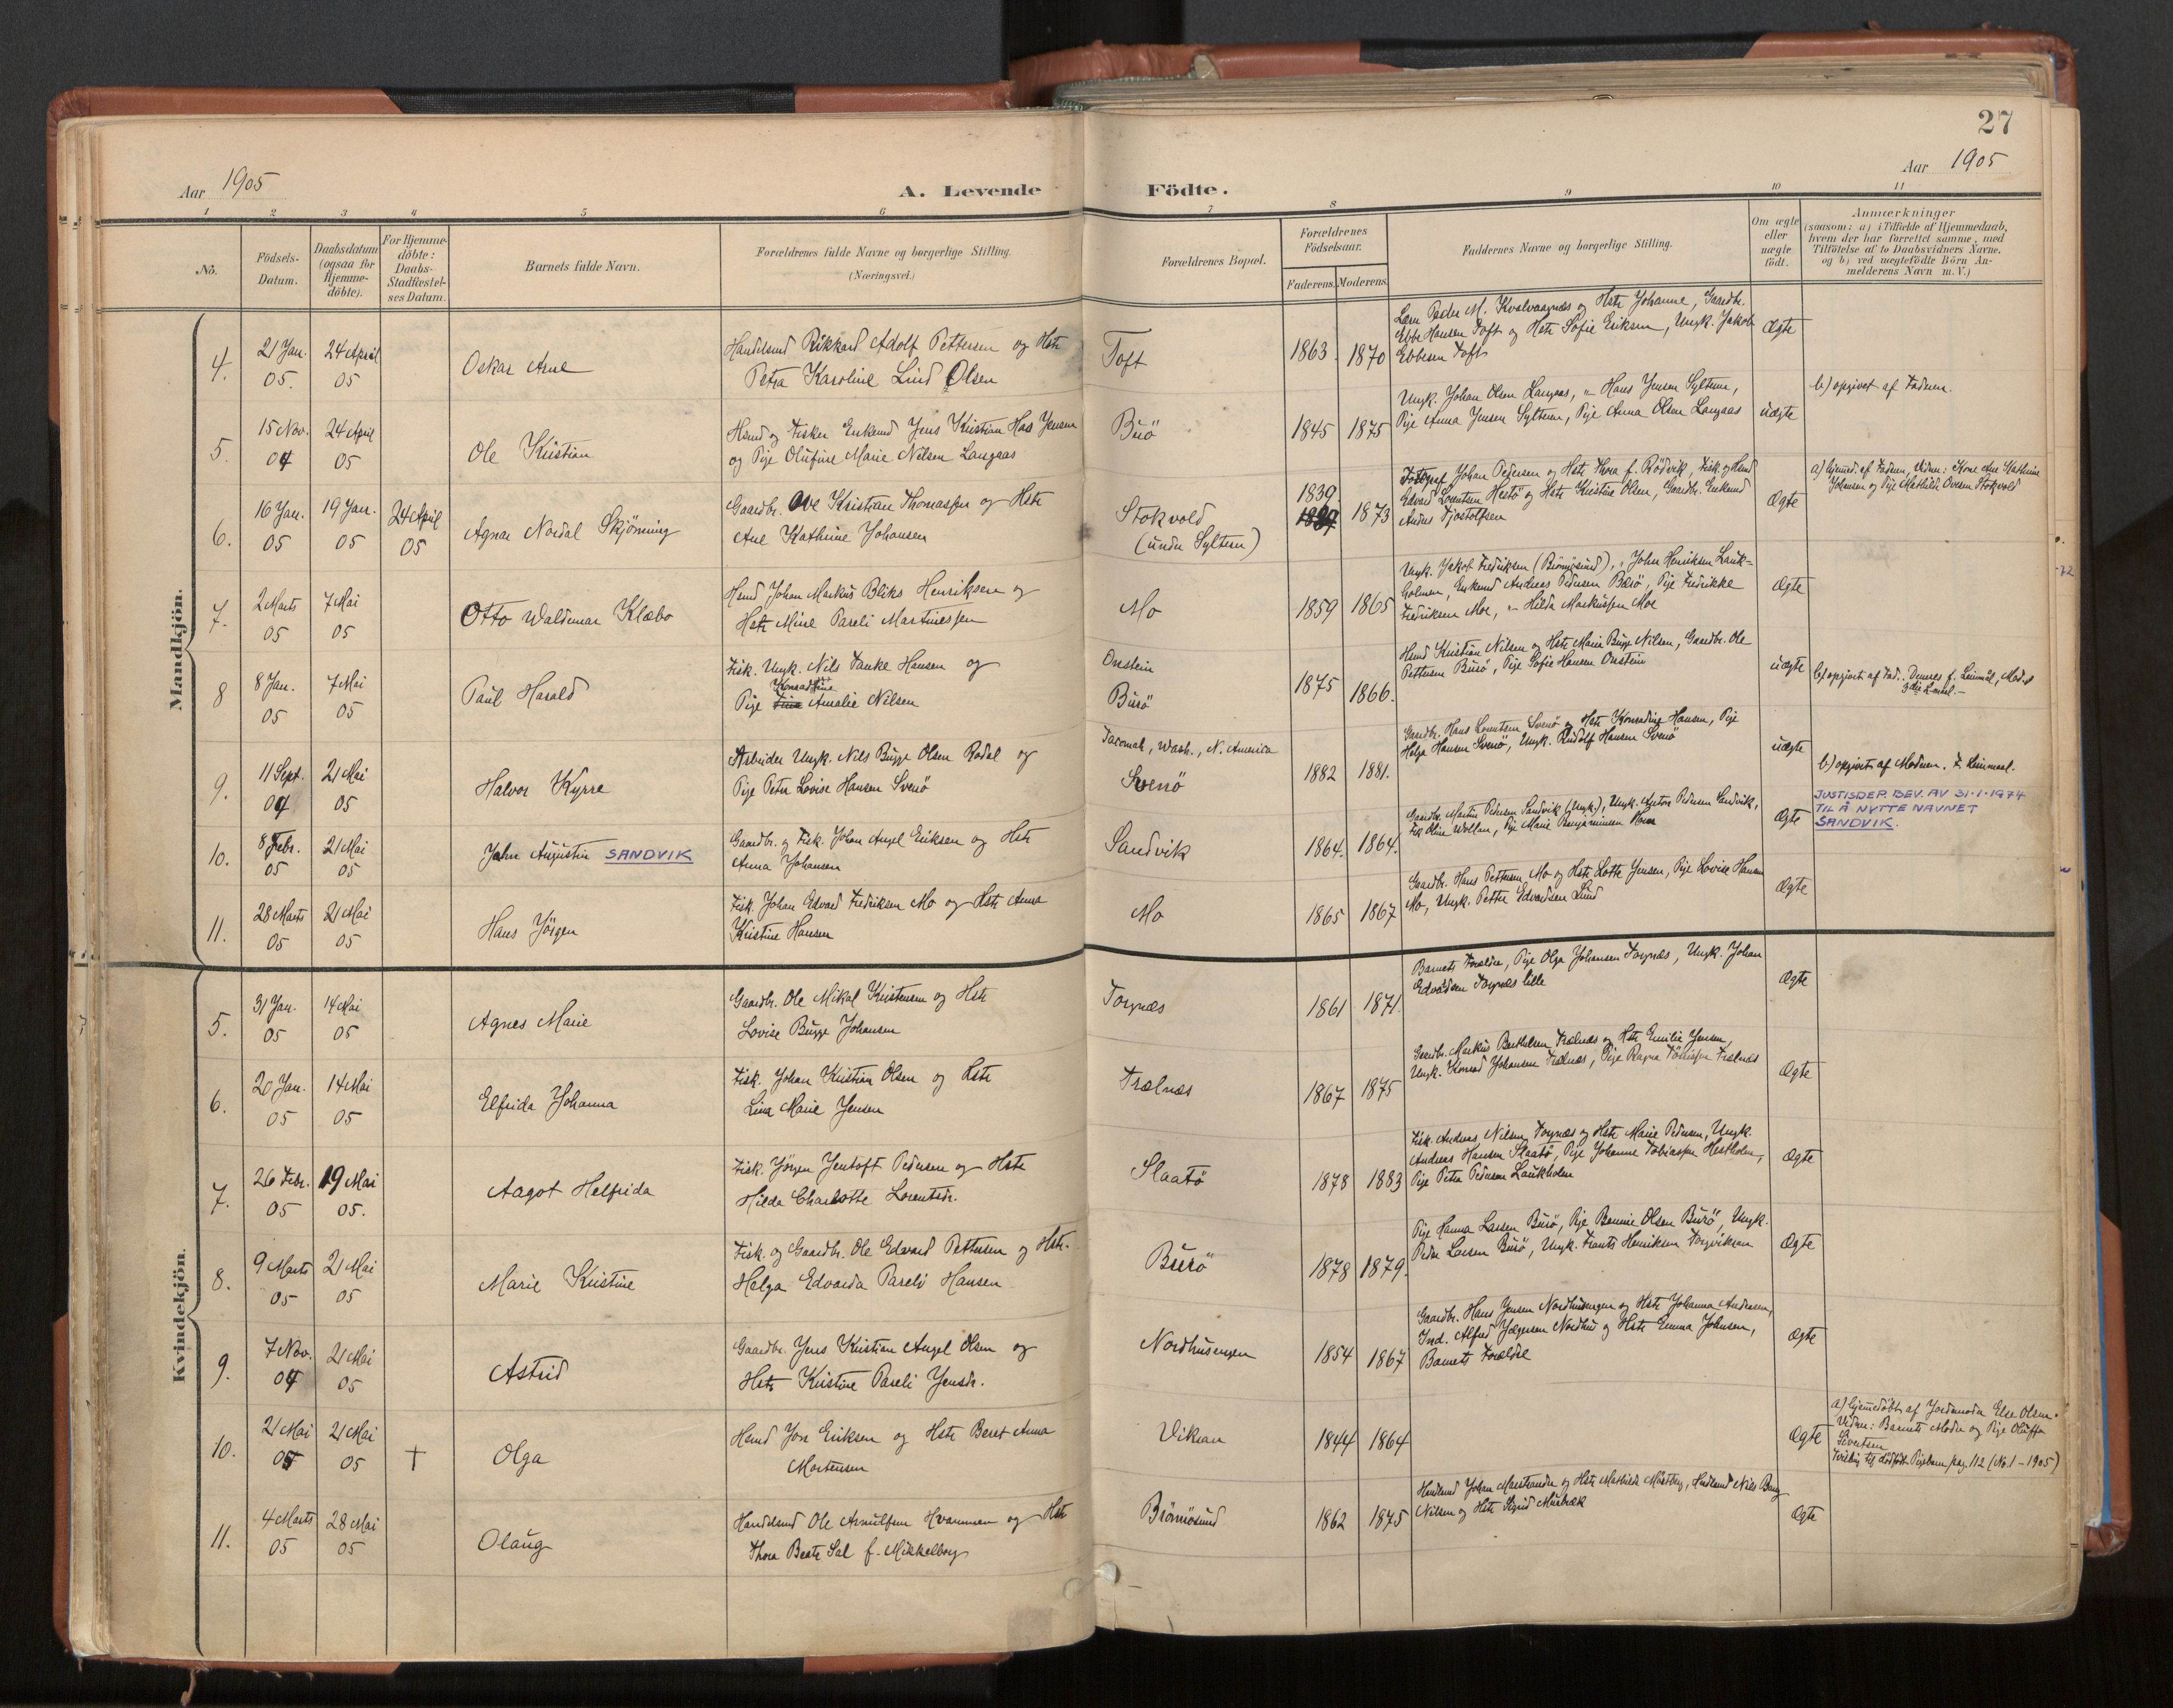 27
Aar 1905
Aar 1905
A. Levende
Födte.
1 2 3 4 5 6 7 8 9 10 11
No.
Födsels-
Datum.
Daabsdatum
(ogsaa for
Hjemme-
döbte).
For Hjemme-
döbte:
Daabs-
Stadfæstel-
ses Datum.
Barnets fulde Navn.
Forældrenes fulde Navne og borgerlige Stilling.
(Næringsvei.)
Forældrenes Bopæl.
Forældrenes
Födselsaar.
Faderens. Moderens.
Faddernes Navne og borgerlige Stilling.
Om ægte
eller
uægte
födt.
Anmærkninger
(saasom: a) i Tilfælde af Hjemmedaab,
hvem der har forrettet samme, med
Tilföielse af to Daabsvidners Navne,
og b) ved uægtefödte Börn An-
melderens Navn m. V.)
Mandkjön.
4. 21 Jan. 05. 24 April 05
Oskar Arne
Handelsmd Rikkard Adolf Pettersen og Hstr
Petra Karoline Lind Olsen
Toft
1863. 1870
Lærer Peder M. Kvalvaagnæs og Hstr Johanne, Gaardbr.
Ebbe Hansen Toft og Hstr Sofie Eriksen, Ungk. Jakob
Ebbesen Toft
Ægte
5. 15 Nov. 04 24 April 05
Ole Kristian
Hsmd og Fisker Enkemd Jens Kristian Has Jensen
og Pige Olufine Marie Nilsen Langaas
Burö
1845 1875
Ungk. Johan Olsen Langaas, " Hans Jensen Syltern,
Pige Anna Jensen Syltern, Pige Anna Olsen Langaas
uægte
b) opgivet af Faderen.
6. 16 Jan. 05 19 Jan. 05 24 April 05
Agnar Nordal Skjönning
Gaardbr. Ove Kristian Thomassen og Hstr
Ane Kathrine Johansen
Stokvold
(under Syltern)
1839. 1873
Fotograf Johan Pedersen og Hstr Thora f. Rödvik, Fisk. og Hsmd
Edvard Lorentsen Hestö og Hstr Kristine Olsen, Gaardbr. Enkemd
Anders Tjostolfsen
Ægte
a) hjemmed. af Faderen, Vidner: Kone Ane Kathrine
Johansen og Pige Mathilde Ovesen Stokvold
7. 2 Marts 05 7 Mai 05
Otto Waldemar Klæbo
Hsmd Johan Markus Bliks Henriksen og
Hstr Mine Pareli Martinessen
Mo
1859 1865
Ungk. Jakob Fredriksen (Brönnösund), " John Henriksen Lauk-
holmen, Enkemd Andreas Pedersen Burö, Pige Fredrikke
Fredriksen Moe, " Hilda Markussen Moe
Ægte
8 8 Jan. 05 7 Mai 05
Paul Harald
Fisk. Ungk. Nils Tanke Hansen og
Konradine
Pige Tina Amalie Nilsen
Onstein
Burö
1875 1866.
Hsmd Kristian Nilsen og Hstr Marie Bugge Nilsen, Gaardbr. Ole
Pettersen Burö, Pige Sofie Hansen Onstein
uægte
b) opgivet af Fad.. Dennes f. Leiermål, Mod.s
3die Leierml. –
9. 11 Sept. 04 21 Mai 05
Halvor Kyrre
Arbeider Ungk. Nils Bugge Olsen Rodal og
Pige Petra Lovise Hansen Svenö
Tacomah, Wash., N. America
Svenö
1882 1881.
Gaardbr. Hans Lorentsen Svenö og Hstr Konradine Hansen, Pige
Helga Hansen Svenö, Ungk. Rudolf Hansen Svenö
uægte
b) opgivet af Moderen. F. Leiermaal.
10. 8 Febr. 05 21 Mai 05
John Augustin SANDVIK
Gaardbr. og Fisk. Johan Angel Eriksen og Hstr
Anna Johansen
Sandvik
1864. 1864.
Gaardbr. Martin Pedersen Sandvik (Ungk.), Ungk. Anton Pedersen Sandvik,
Frk Oline Wollan, Pige Marie Benjaminsen
Ægte
JUSTISDEP. BEV. AV 31.1.1974
TIL Å NYTTE NAVNET
SANDVIK.
11. 28 Marts 05 21 Mai 05
Hans Jörgen
Fisk. Johan Edvard Fredriksen Mo og Hstr Anna
Kristine Hansen
Mo
1865 1867
Gaardbr. Hans Pettersen Mo og Hstr Lotte Jensen, Pige Lovise Hansen
Mo, Ungk. Petter Edvardsen Lund
Ægte
Kvindekjön.
5. 31 Jan. 05 14 Mai 05
Agnes Marie
Gaardbr. Ole Mikal Kristensen og Hstr
Lovise Bugge Johansen
Torgnæs
1861 1871.
Barnets Forældre, Pige Olga Johansen Torgnæs, Ungk. Johan
Edvardsen Torgnæs lille
Ægte
6. 20 Jan. 05 14 Mai 05
Elfrida Johanna
Fisk. Johan Kristian Olsen og Hstr
Lina Marie Jensen
Trælnæs
1867 1875
Gaardbr. Markus Berthelsen Trælnæs og Hstr Emilie Jensen,
Ungk. Konrad Johansen Trælnæs, Pige Ragna Tönnissen Trælnæs
Ægte
7. 26 Febr. 05 19 Mai 05.
Aagot Helfrida
Fisk. Jörgen Jentoft Pedersen og Hstr
Hilda Charlotte Lorentsdr.
Slaatö
1878 1883
Fisk. Andreas Nilsen Torgnæs og Hstr Marie Pedersen, Ungk.
Andreas Hansen Slaatö, Pige Johanne Tobiassen Hestholm,
Pige Petra Pedersen Laukholm
Ægte
8. 9 Marts 05 21 Mai 05
Marie Kristine
Fisk. og Gaardbr. Ole Edvard Pettersen og Hstr.
Helga Edvarda Pareli Hansen
Burö
1878 1879.
Pige Hanna Larsen Burö, Pige Bennie Olsen Burö, Ungk.
Peder Larsen Burö, Ungk. Frants Henriksen Torgviksen
Ægte
9. 7 Nov. 04 21 Mai 05
Astrid
Gaardbr. Jens Kristian Angel Olsen og
Hstr Kristine Pareli Jensdr.
Nordhusengen
1854 1867
Gaardbr. Hans Jensen Nordhusengen og Hstr Johanna Andersen,
Ind. Alfred Jörgensen Nordhus og Hstr Emma Johnsen,
Barnets Forældre
Ægte
10. 21 Mai 05 21 Mai 05 †
Olga
Hsmd Jon Eriksen og Hstr Beret Anna
Mortensen
Vikran
1844 1864
Ægte
a) hjemmedöbt af Jordemoder Else Olsen.
Vidner: Barnets Moder og Pige Oluffa
Sivertsen
Tvilling til dödfödt Pigebarn pag. 112 (No. 1 – 1905)
11. 4 Marts 05 28 Mai 05
Olaug
Handelsmd Ole Arnulfsen Hvammen og Hstr
Thora Beate Sal f. Mikkelborg
Brönnösund
1862 1875
Handlsmd Johan Marstrander og Hstr Mathilde, Handlsmd Nils Bang
Nilsen og Hstr Sigrid
Ægte